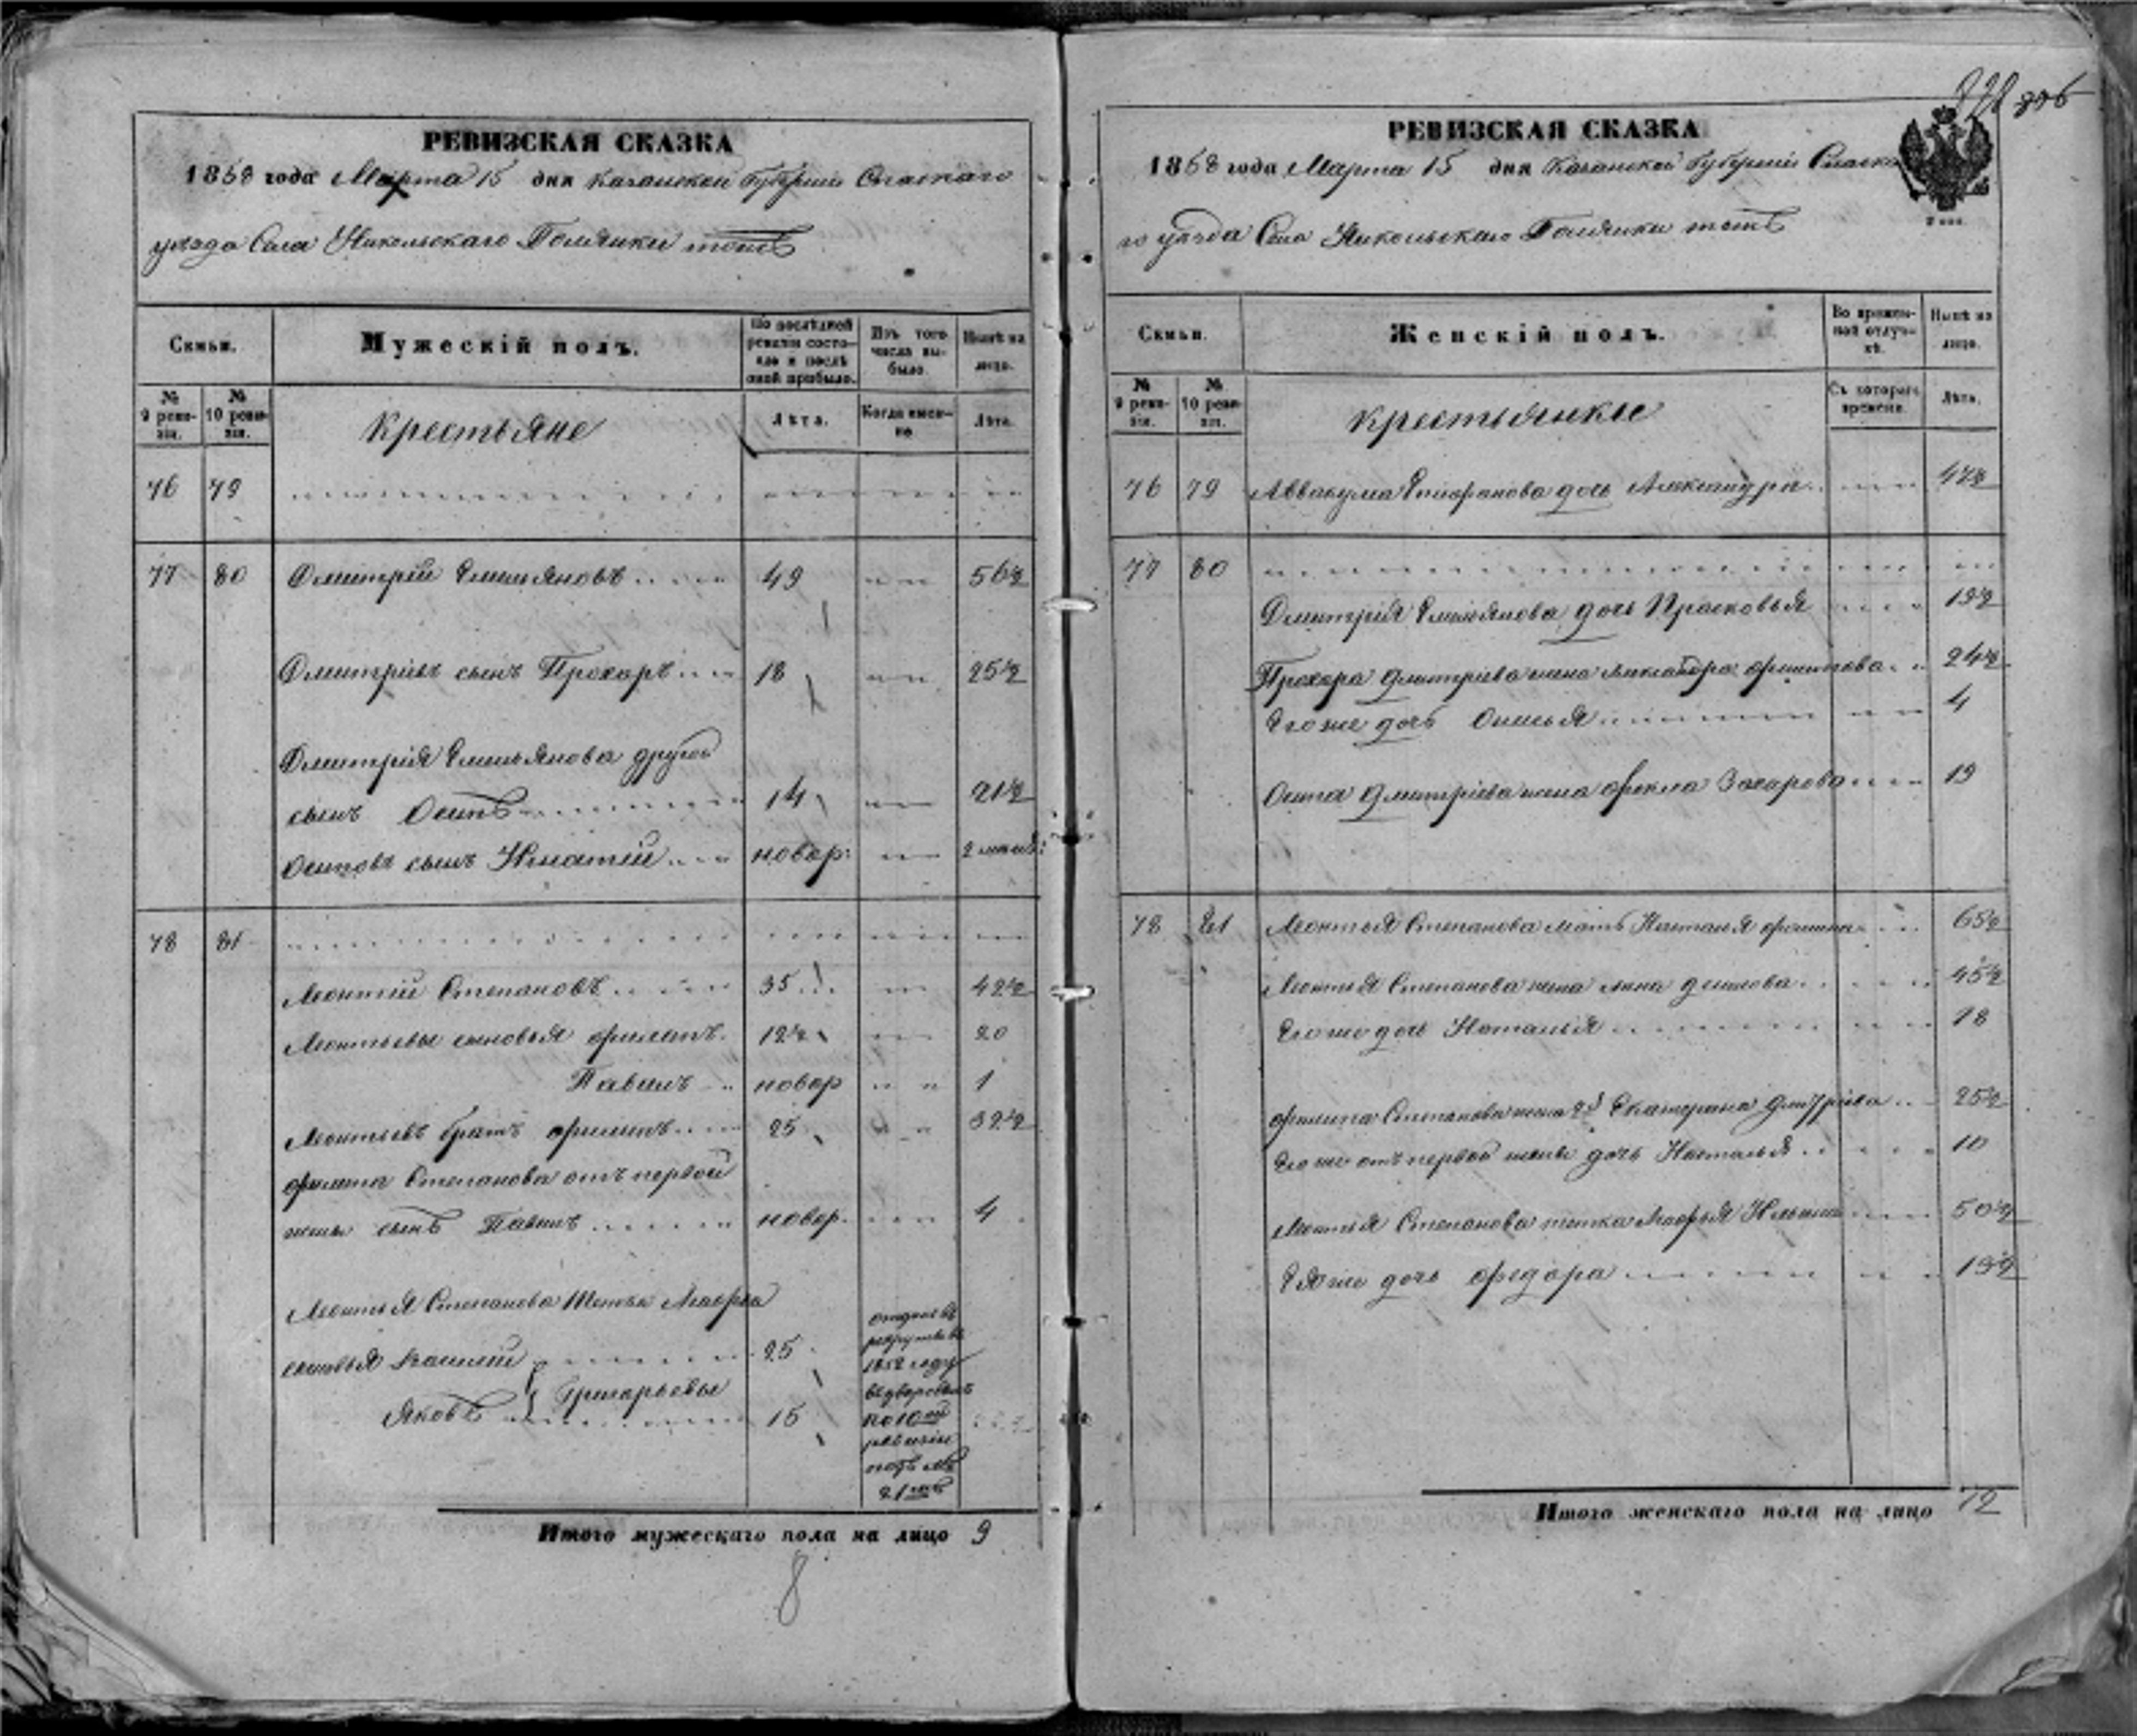 РЕВИЗСКАЯ СКАЗКА
1858 года Марта 15 дня Казанской Губерніи Спаскаго
уѣзда Села Никольскаго Полянки тожъ
Семьи.
Мужескій полъ.
По послѣдней ревизіи состояло и послѣ оной прибыло.
Изъ того числа выбыло.
Нынѣ на лицо.
№ 9 ревизіи.
№ 10 ревизіи.
Крестьяне
Лѣта.
Когда именно.
Лѣта.
76 79
77 80 Дмитрій Емельяновъ 49 56½
Дмитріевъ сынъ Прохоръ 18 25½
Дмитрія Емельянова другой
сынъ Осипъ 14 21½
Осиповъ сынъ Игнатій новор:
78 81
Леонтій Степановъ 35 42½
Леонтьевы сыновья Филатъ 12½ 20
Павелъ новор 1
Леонтьевъ братъ Филипъ 25 32½
Филипа Степанова отъ первой
жены сынъ Павелъ новор. 4
Леонтья Степанова тетки Марфы
сыновья Василій 25
Яковъ } Григорьевы 15
отданъ въ
рекруты въ
1852 году
водворенъ
по 10ой
ревизіи
подъ №
21мъ
Итого мужескаго пола на лицо 9
8
328 306
РЕВИЗСКАЯ СКАЗКА
1858 года Марта 15 дня Казанской Губерніи Спаска
го уѣзда Села Никольскаго Полянки тожъ
Семьи.
Женскій полъ.
Во временной отлучкѣ.
Нынѣ на лицо.
№ 9 ревизіи.
№ 10 ревизіи.
Крестьянкы
Съ котораго времени.
Лѣта.
76 79 Аввакума Епифанова дочь Александра 47½
77 80
Дмитрія Емельянова дочь Прасковья 19½
Прохора Дмитріева жена Александра Филипова 24½
Его же дочь 4
Осипа Дмитріева жена Фекла Захарова 19
78 81 Леонтья Степанова мать Наталья 65½
Леонтья Степанова жена Анна 45½
Его же дочь Наталья 18
Филипа Степанова жена 2я Екатерина Дмитріева 25½
Его же отъ первой жены дочь Наталья 10
Леонтья Степанова тетка Марфья Ильина 50½
Ея же дочь Федора 19½
Итого женскаго пола на лицо 12